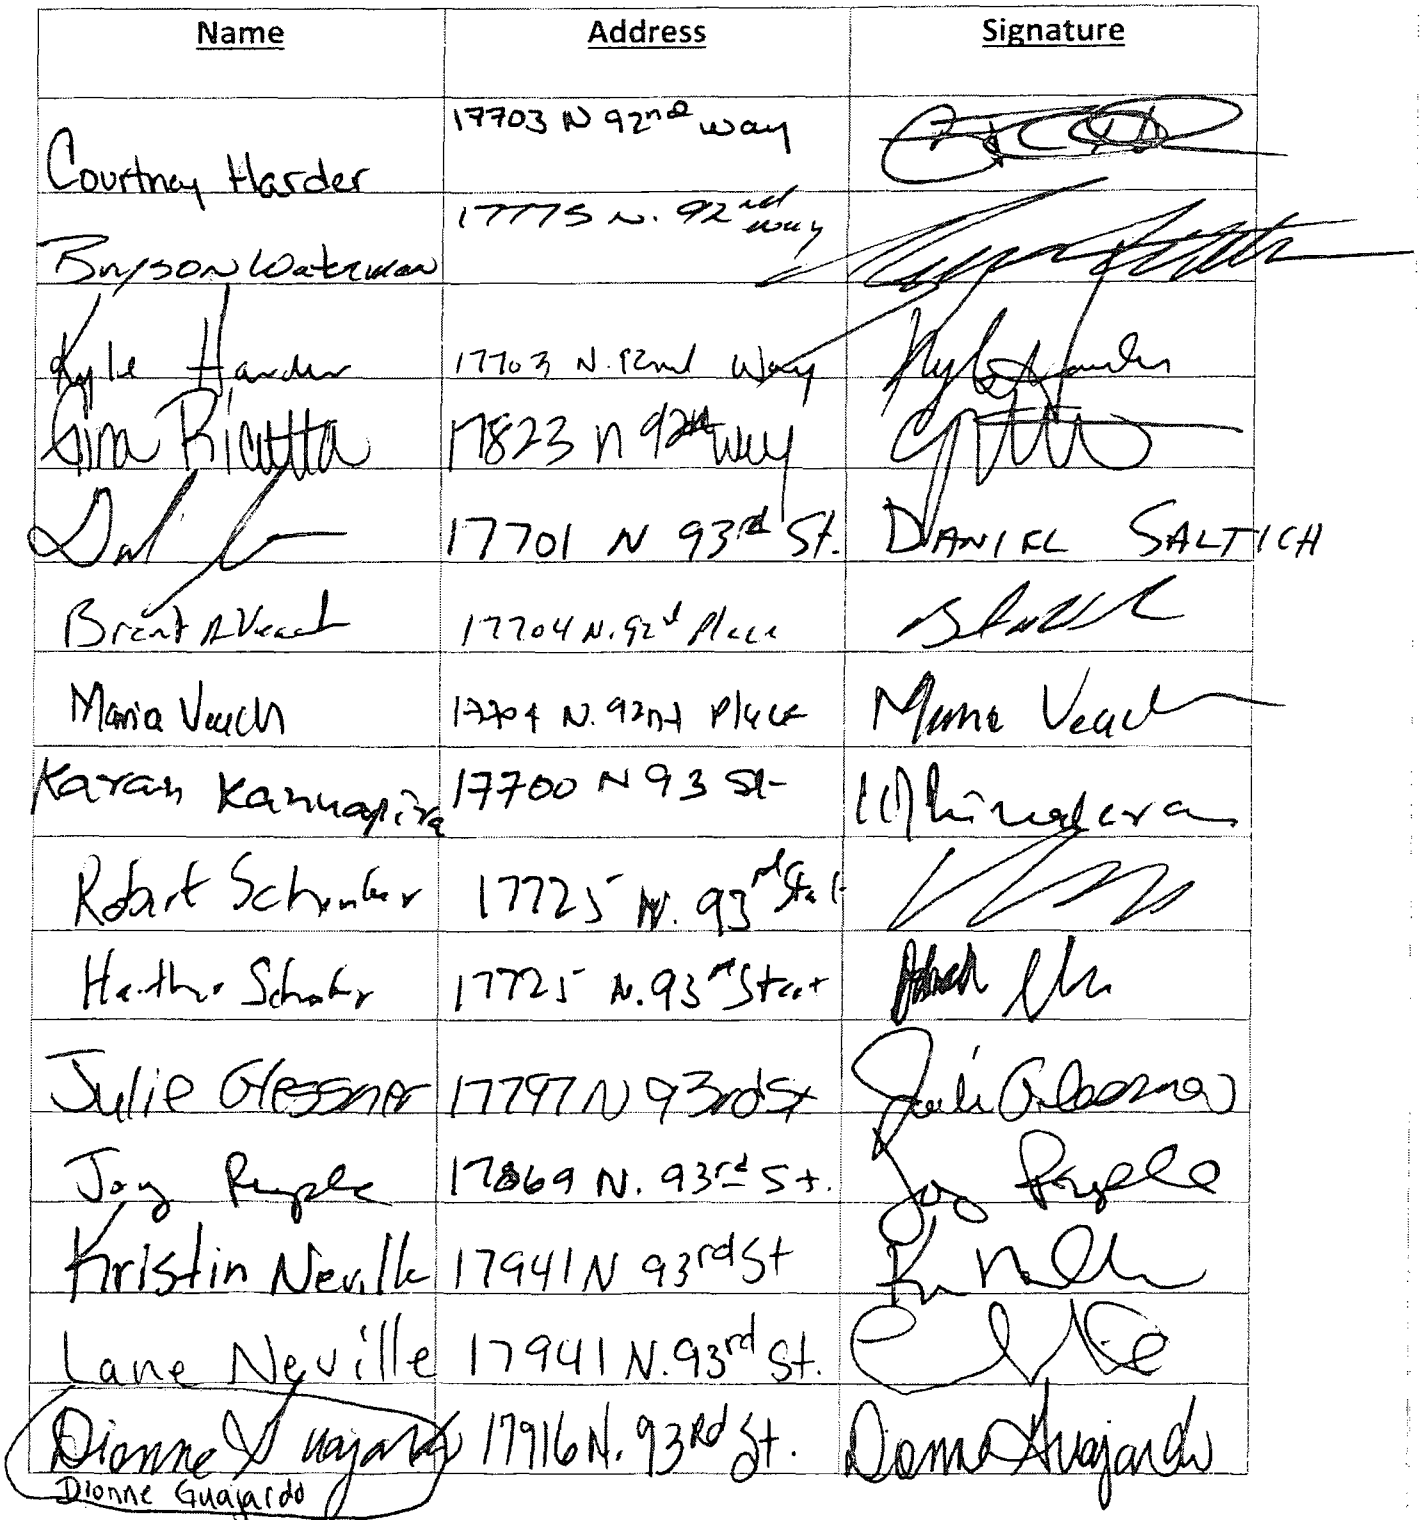 Name Address Signature
Courtney Harder 17703 N 92nd Way
Bryson Waterman 17775 N. 92nd Way
Kyle Harder 17703 N. 92nd Way Kyle Harder
Gina Ricotta 17823 N 92nd Way
17701 N 93rd St. DANIEL SALTICH
Brent A Veach 17704 N. 92nd Place
Maria Veach 17704 N. 92nd Place Maria Veach
Karan 17700 N 93 St
Robert 17725 N. 93rd Street
Heather 17725 N. 93rd Street
Julie Glessner 17797 N 93rd St Julie Glessner
Joy 17869 N. 93rd St. Joy
Kristin Neville 17941 N 93rd St
Lane Neville 17941 N. 93rd St.
Dionne Guajardo 17916 N. 93Rd St. Dionne Guajardo
Dionne Guajardo